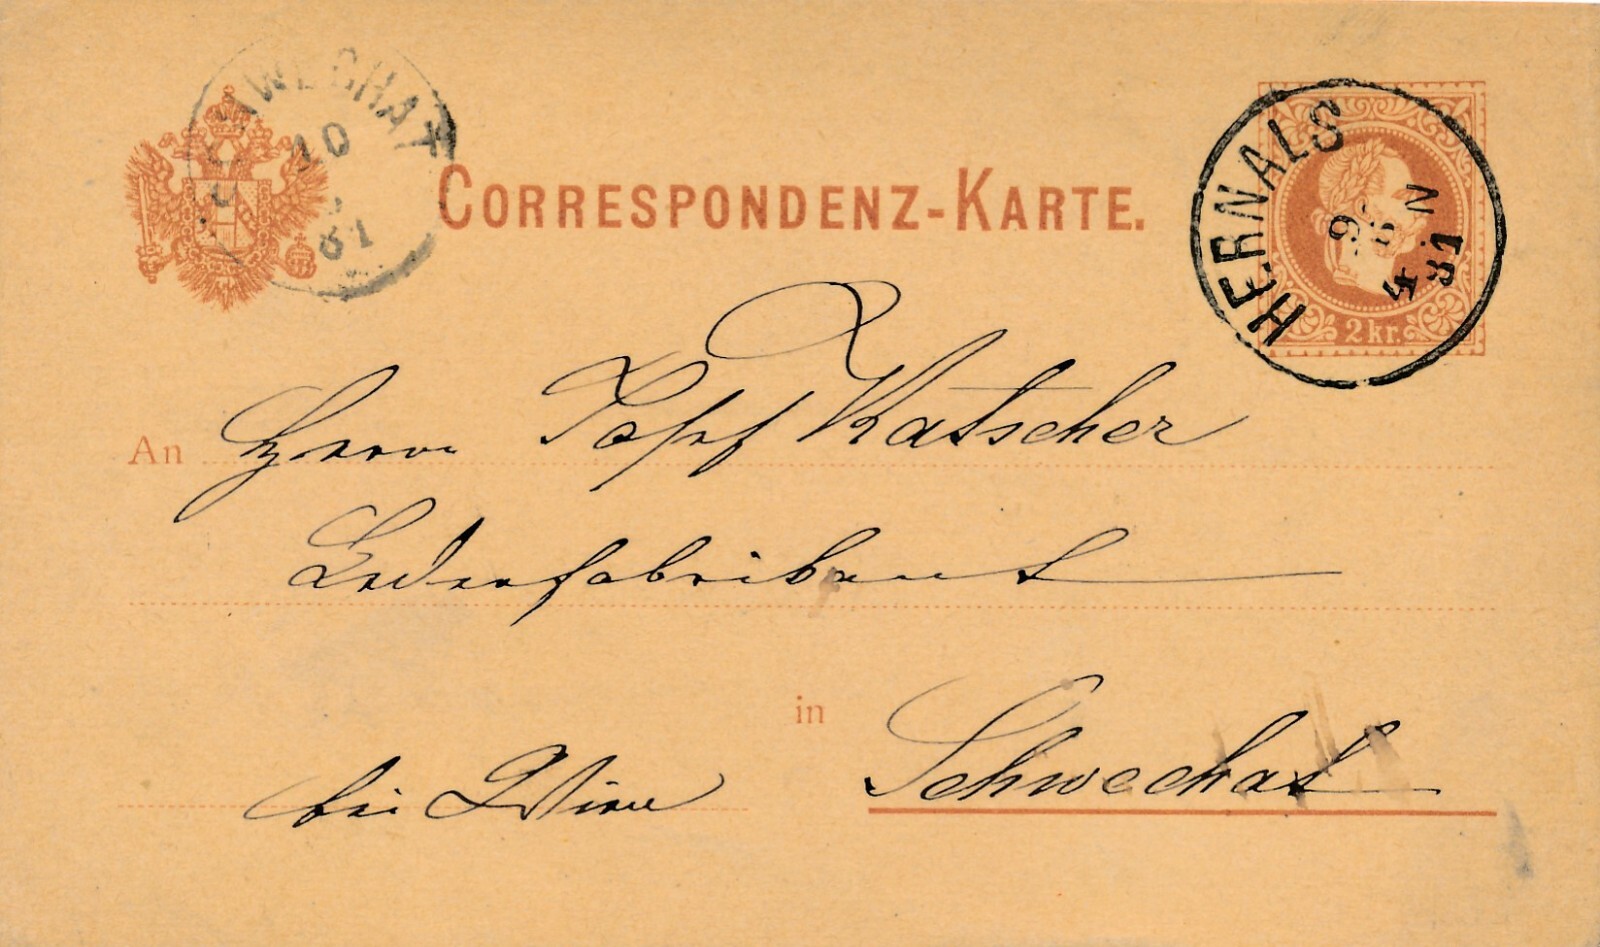 SCHWECHAT
10
81
CORRESPONDENZ-KARTE.
HERNALS
9
8
4 N
81
2 kr.
An Herrn Josef Katscher
Lederfabrikant
in Schwechat
bei Wien